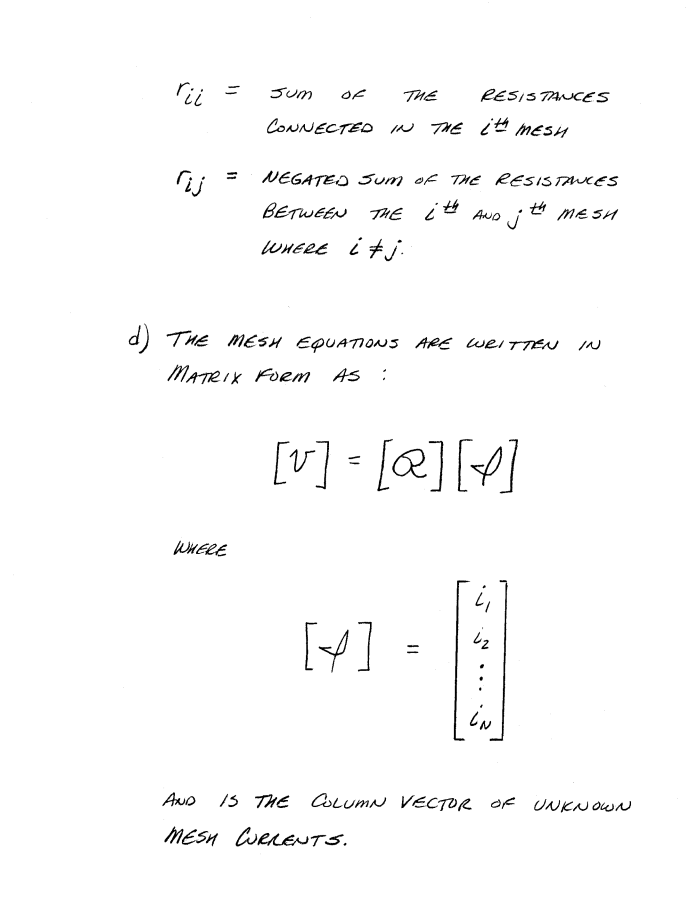 r_ii = SUM OF THE RESISTANCES
CONNECTED IN THE i^th MESH
r_ij = NEGATED SUM OF THE RESISTANCES
BETWEEN THE i^th AND j^th MESH
WHERE i ≠ j.
d) THE MESH EQUATIONS ARE WRITTEN IN
MATRIX FORM AS :
[V] = [R][ℐ]
WHERE
[ℐ] = [i_1
i_2
⋮
i_N]
AND IS THE COLUMN VECTOR OF UNKNOWN
MESH CURRENTS.